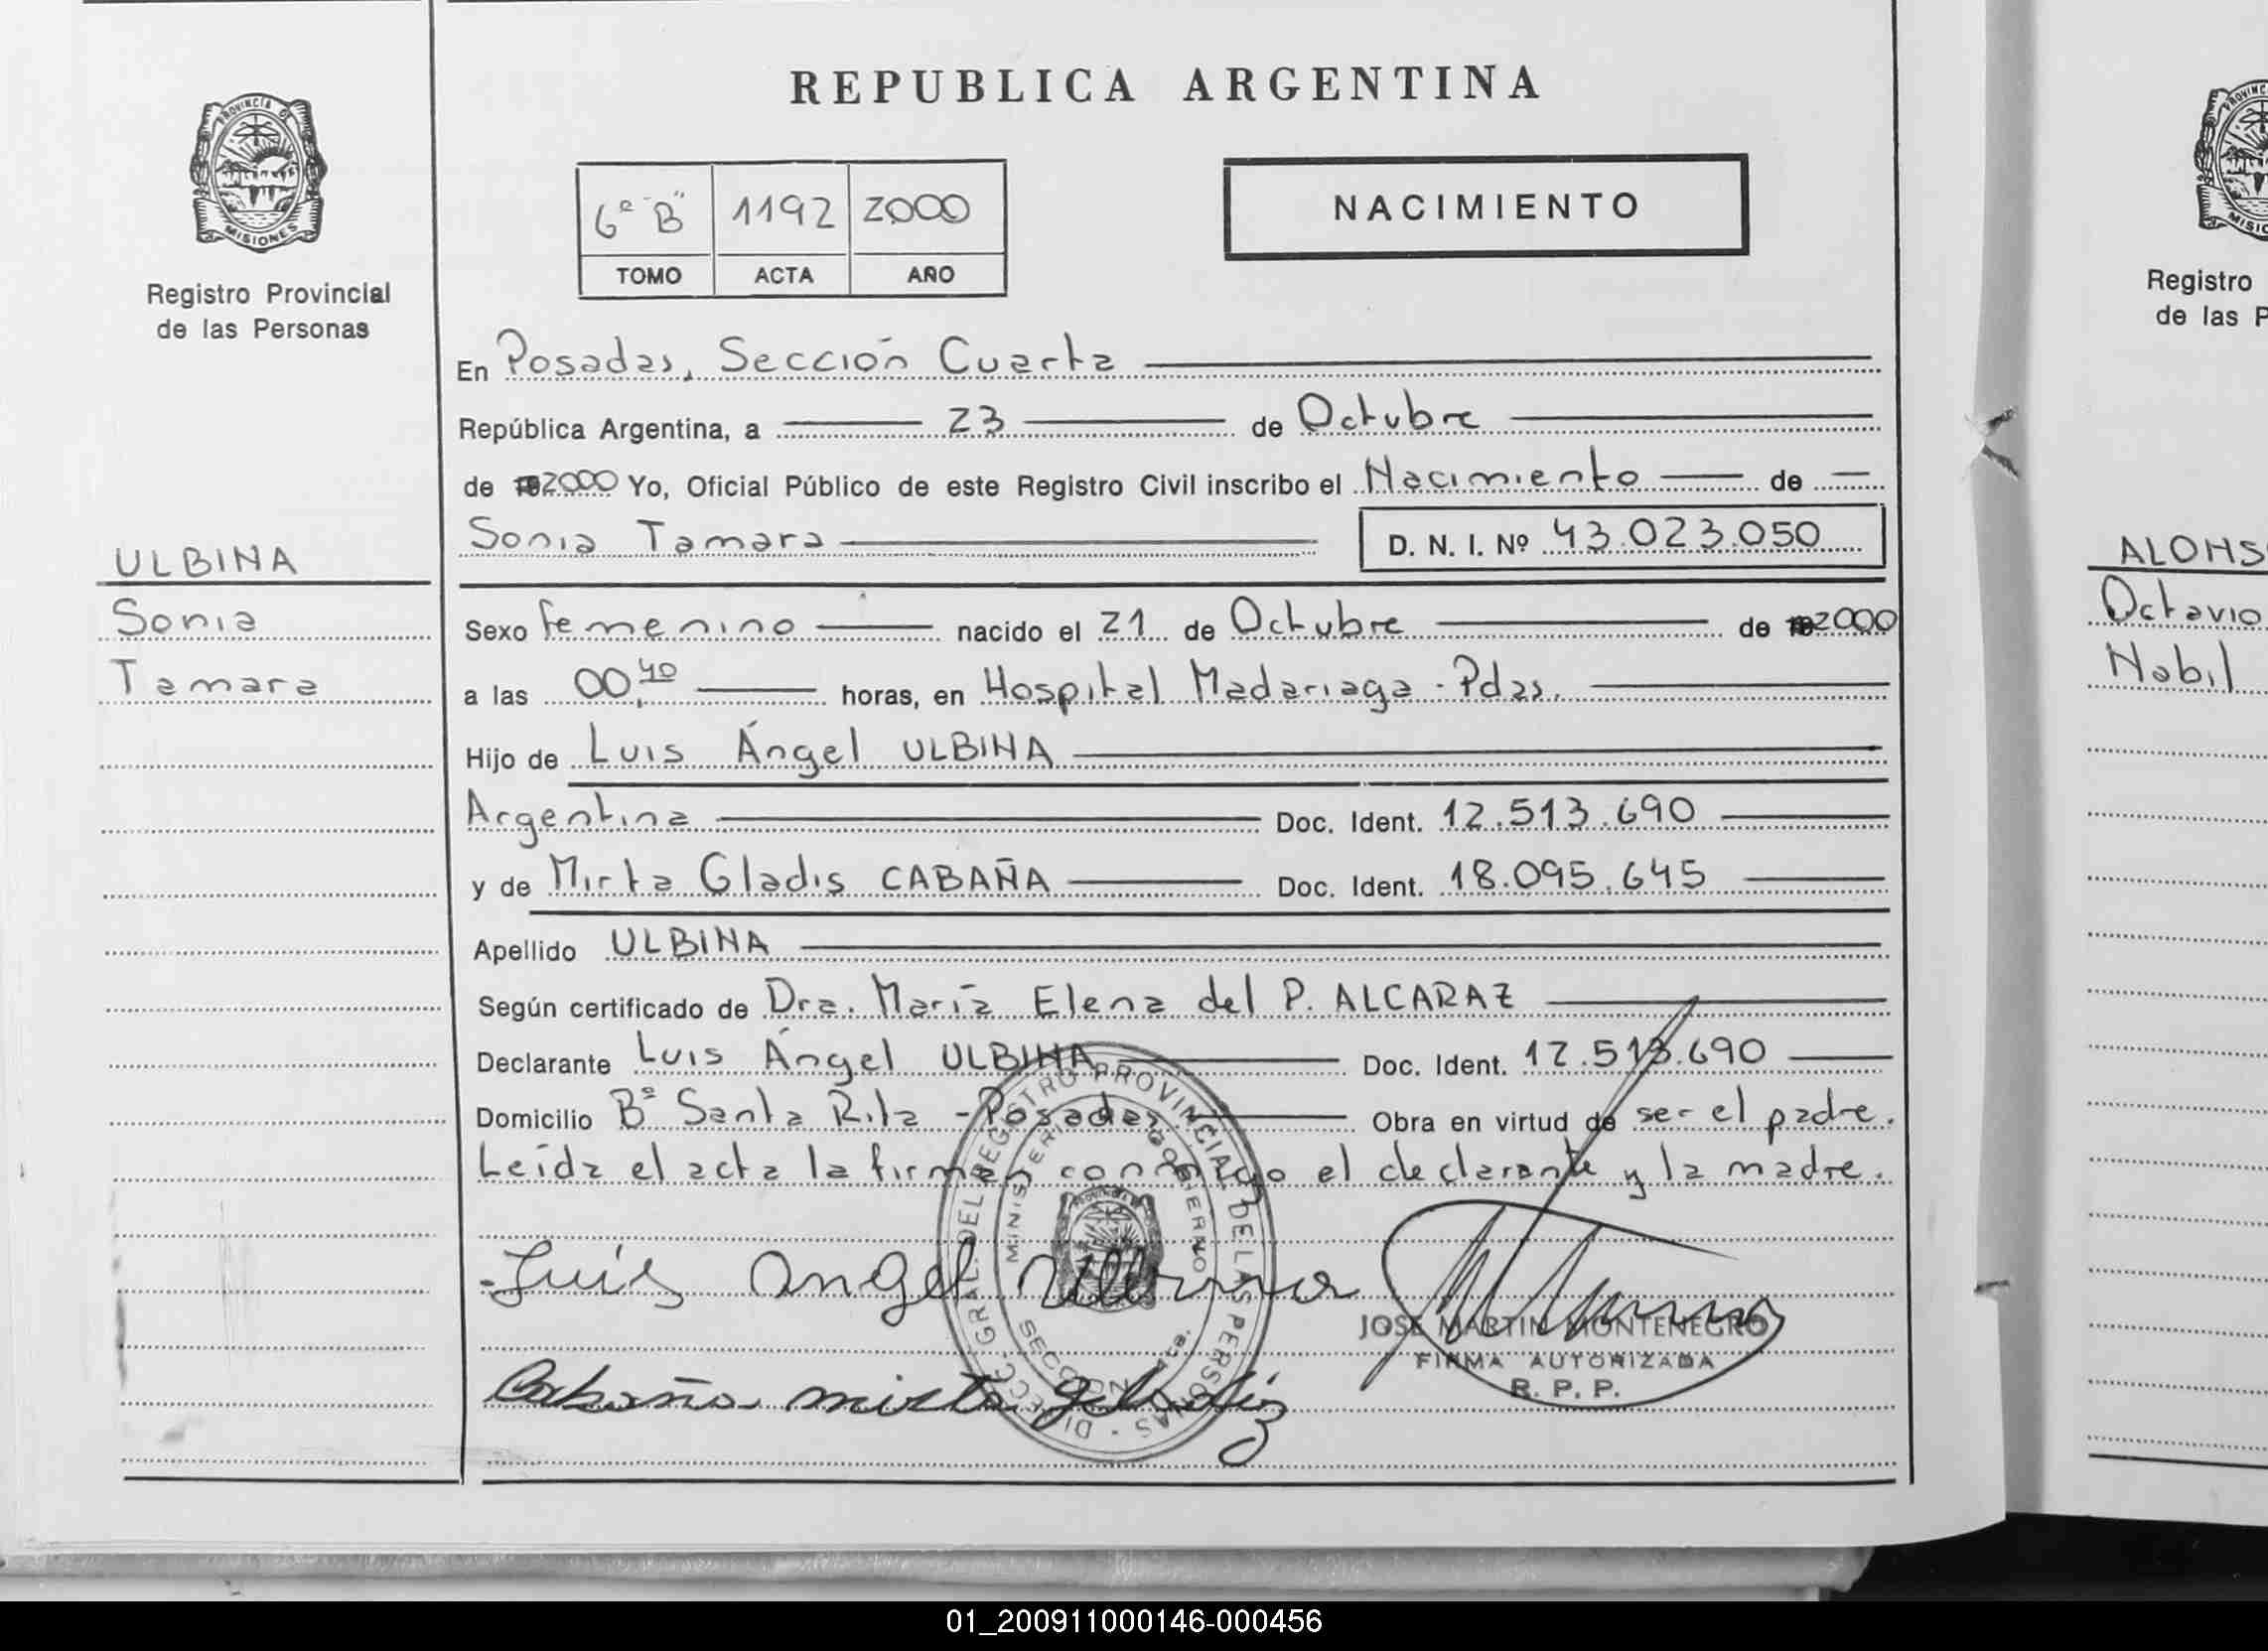 REPUBLICA ARGENTINA
PROVINCIA DE
MISIONES
Registro Provincial
de las Personas
6º "B" 1192 2000
TOMO ACTA AÑO
NACIMIENTO
En Posadas, Sección Cuarta
República Argentina, a 23 de Octubre
de 2000 Yo, Oficial Público de este Registro Civil inscribo el Nacimiento de
Sonia Tamara D. N. I. Nº 43.023.050
ULBINA
Sonia
Tamara
Sexo femenino nacido el 21 de Octubre de 2000
a las 00,40 horas, en Hospital Madariaga - Pdas.
Hijo de Luis Ángel ULBINA
Argentina Doc. Ident. 12.513.690
y de Mirta Gladis CABAÑA Doc. Ident. 18.095.645
Apellido ULBINA
Según certificado de Dra. María Elena del P. ALCARAZ
Declarante Luis Ángel ULBINA Doc. Ident. 12.513.690
Domicilio Bº Santa Rita - Posadas Obra en virtud de ser el padre.
Leída el acta la firman conmigo el declarante y la madre.
Luis Angel Ulbina
Cabaña mirta gladiz
DIRECC. GRAL. DEL REGISTRO PROVINCIAL DE LAS PERSONAS
MINISTERIO GOBIERNO
SECCION 4ta.
JOSE MARTIN MONTENEGRO
FIRMA AUTORIZADA
R. P. P.
Registro
de las P
ALONS
Octavio
Nabil
01_200911000146-000456